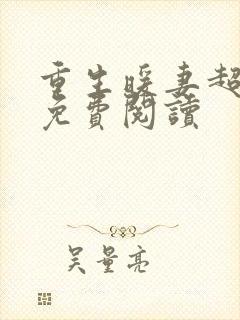 重生暖妻超
免費閱讀
吴量亮